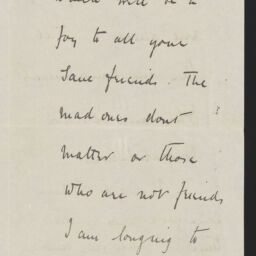 would will be a
joy to all your
Sane friends. The
mad ones dont
matter or those
who are not friends
I am longing to